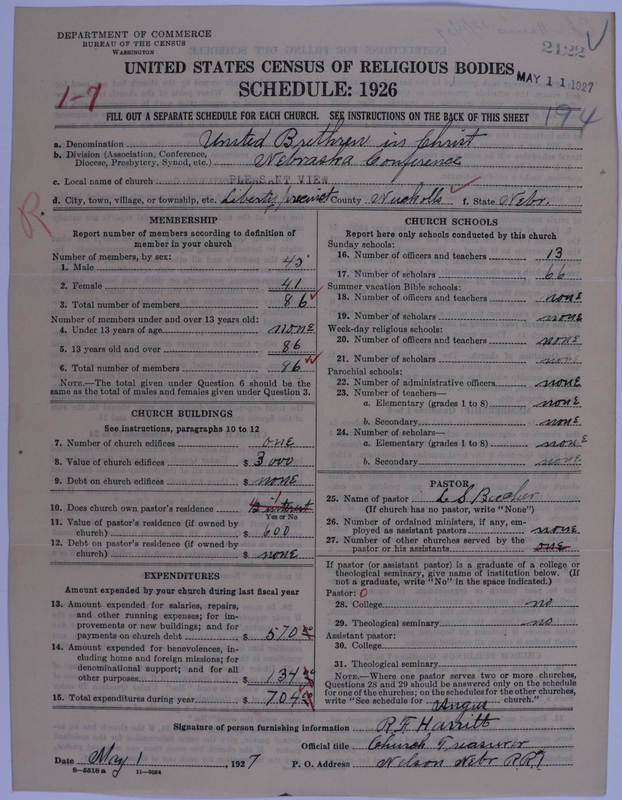 DEPARTMENT OF COMMERCE
BUREAU OF THE CENSUS
WASHINGTON
2122
UNITED STATES CENSUS OF RELIGIOUS BODIES
MAY 11 1927
SCHEDULE: 1926
1-7
194
FILL OUT A SEPARATE SCHEDULE FOR EACH CHURCH. SEE INSTRUCTIONS ON THE BACK OF THIS SHEET
a. Denomination United Brethren in Christ
b. Division (Association, Conference, Diocese, Presbytery, Synod, etc.) Nebraska Conference
c. Local name of church PLEASANT VIEW
d. City, town, village, or township, etc. Liberty precinct County Nuckolls f. State Nebr.
R
MEMBERSHIP
Report number of members according to definition of member in your church
Number of members, by sex:
1. Male 45
2. Female 41
3. Total number of members 86
Number of members under and over 13 years old:
4. Under 13 years of age none
5. 13 years old and over 86
6. Total number of members 86
NOTE.—The total given under Question 6 should be the same as the total of males and females given under Question 3.
CHURCH BUILDINGS
See instructions, paragraphs 10 to 12
7. Number of church edifices one
8. Value of church edifices $ 3000
9. Debt on church edifices $ none
10. Does church own pastor's residence 1/3 interest
Yes or No
11. Value of pastor's residence (if owned by church) $ 600
12. Debt on pastor's residence (if owned by church) $ none
EXPENDITURES
Amount expended by your church during last fiscal year
13. Amount expended for salaries, repairs, and other running expenses; for improvements or new buildings; and for payments on church debt $ 570
14. Amount expended for benevolences, including home and foreign missions; for denominational support; and for all other purposes $ 134
15. Total expenditures during year $ 704
CHURCH SCHOOLS
Report here only schools conducted by this church
Sunday schools:
16. Number of officers and teachers 13
17. Number of scholars 66
Summer vacation Bible schools:
18. Number of officers and teachers none
19. Number of scholars none
Week-day religious schools:
20. Number of officers and teachers none
21. Number of scholars none
Parochial schools:
22. Number of administrative officers none
23. Number of teachers—
a. Elementary (grades 1 to 8) none
b. Secondary none
24. Number of scholars—
a. Elementary (grades 1 to 8) none
b. Secondary none
PASTOR
25. Name of pastor
(If church has no pastor, write "None")
26. Number of ordained ministers, if any, employed as assistant pastors none
27. Number of other churches served by the pastor or his assistants one
If pastor (or assistant pastor) is a graduate of a college or theological seminary, give name of institution below. (If not a graduate, write "No" in the space indicated.)
Pastor: 0
28. College no
29. Theological seminary no
Assistant pastor:
30. College
31. Theological seminary
NOTE.—Where one pastor serves two or more churches, Questions 28 and 29 should be answered only on the schedule for one of the churches; on the schedules for the other churches, write "See schedule for Angus church."
Signature of person furnishing information R. F. Harritt
Official title Church Treasurer
Date May 1, 1927 P. O. Address Nelson Nebr
8-5518 a 11-9054